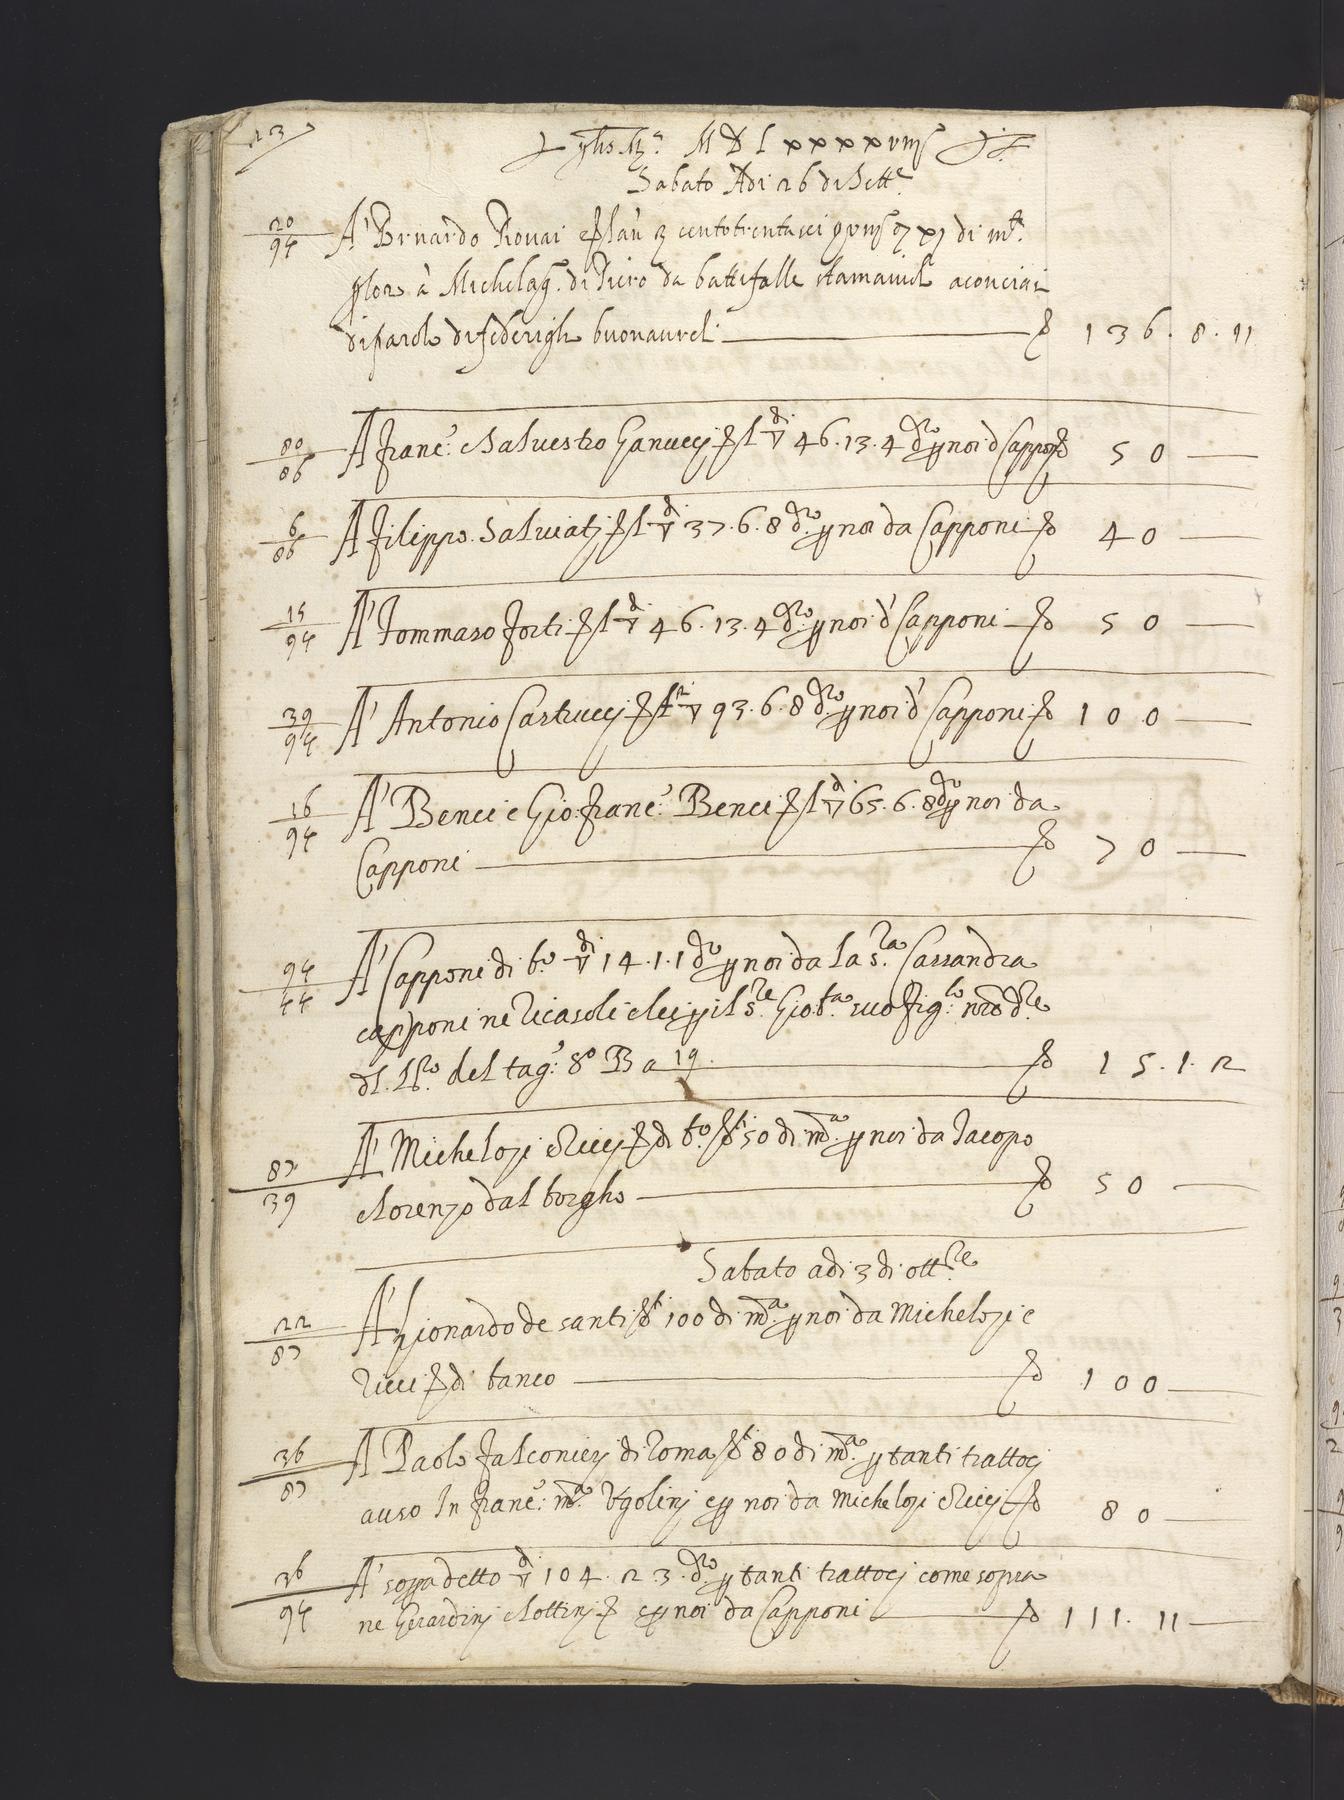 23
yhs M:a M D L x x x x viiij
Sabato Adi 26 di Sette
20/94 A' Brnardo Rouai centotrentasei di mta
a' Michelag: di Piero da battifolle stamaniel aconciar
di parole di federigh buonaureli ∇ 136 . 8 . 11
80/86 A franc:o e Saluestro Ganucej ∇ di 46 . 13 . 4 d'oro p noi d Capponi ∇ 50 —
6/86 A filippo Saluiatj ∇ di 37 . 6 . 8 d'oro p noi da Capponi ∇ 40 —
15/94 A' Tommaso forti ∇ di 46 . 13 . 4 d'oro p noi d' Capponi ∇ 50 —
39/94 A' Antonio Castrucej ∇ 93 . 6 . 8 d'oro p noi d' Capponi ∇ 100 —
16/94 A' Benci e Gio: franc:o Benci ∇ di 65 . 6 . 8 d'oro p noi da
Capponi ∇ 70 —
94/44 A' Capponi di b:o ∇ di 14 . 1 . 1 d'oro p noi da la s:ra Cassandra
capponi ne Ricasoli e lej p il s:re Gio: b:a suo fig:lo nro d:re
al lib:o del tag:o 8o B a 19 ∇ 15 . 1 . 2
87/39 A' Michelozi e Ricej di b:o 50 di m:ta p noi da Iacopo
e lorenzo dal borgho ∇ 50 —
Sabato adi 3 di ott:re
22/87 A' Lionardo de santi 100 di m:ta p noi da Michelozi e
Ricci di banco ∇ 100 —
36/87 A Paolo falconierj di Roma 80 di m:ta p tanti trattocj
auso In franc:o m:a Vgolinj e p noi da Michelozi e Ricej ∇ 80 —
36/94 A' sopradetto ∇ di 104 . 2 . 3 . d'oro p tanti trattocj come sopra
ne Gerardinj e lottinj e p noi da Capponi ∇ 111 . 11 —